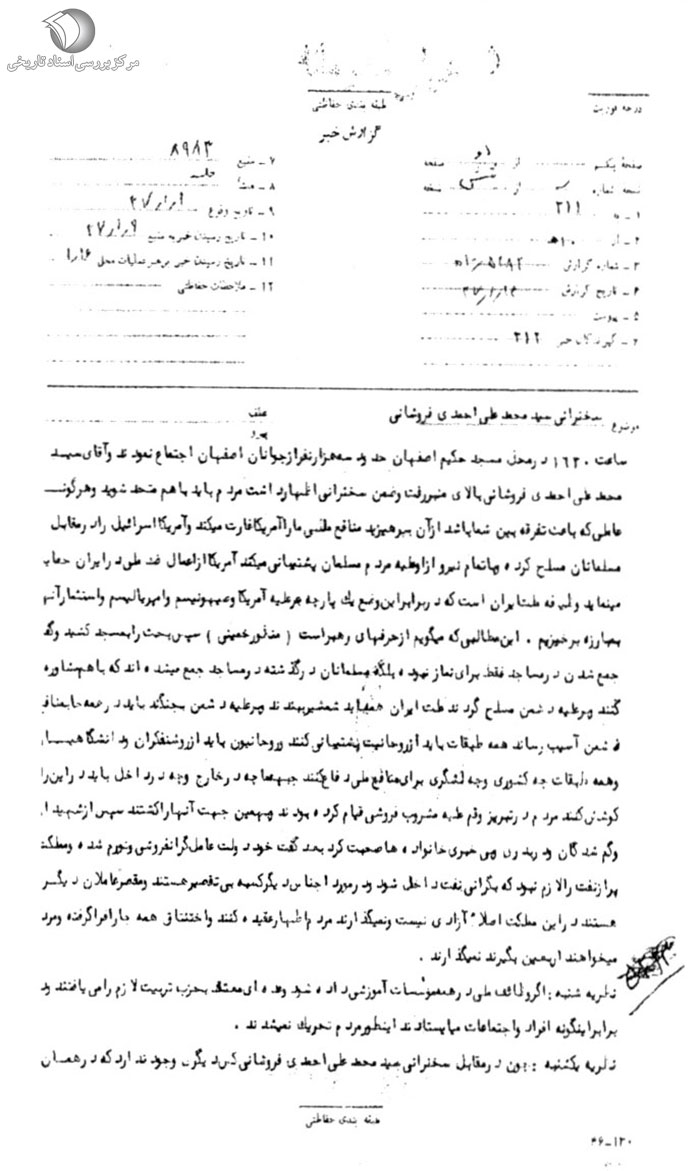 مرکز بررسی اسناد تاریخی
طبقه بندی حفاظتی
درجه فوریت
گزارش خبر
صفحه یکم از دو صفحه
نسخه شماره از نسخه
۱ – به ۳۱۱
۲ – از ۱۰ هـ
۳ – شماره گزارش
۴ – تاریخ گزارش
۵ – پیوست
۶ – گیرندگان خبر ۳۱۲
۷ – منبع ۸۹۸۳
۸ – منشأ
۹ – تاریخ وقوع
۱۰ – تاریخ رسیدن خبر به منبع
۱۱ – تاریخ رسیدن خبر برهبر عملیات محلی
۱۲ – ملاحظات حفاظتی
موضوع سخنرانی سید محمد علی احمدی فروشانی
عطف
پیرو
ساعت ۱۶۳۰ در محل مسجد حکیم اصفهان حدود سه هزار نفر از جوانان اصفهان اجتماع نمودند و آقای سید
محمد علی احمدی فروشانی بالای منبر رفت و ضمن سخنرانی اظهار داشت مردم باید با هم متحد شوید و هرگونه
عاملی که باعث تفرقه بین شما باشد از آن بپرهیزید منافع ملی ما را آمریکا غارت میکند و آمریکا اسرائیل را در مقابل
مسلمانان مسلح کرده و با تمام نیرو از او علیه مردم مسلمان پشتیبانی میکند آمریکا از اعمال ضد ملی در ایران حمایت
مینماید وظیفه ملت ایران است که در برابر این وضع یک پارچه بر علیه آمریکا و صهیونیسم و امپریالیسم و استثمار آنها
بمبارزه برخیزیم . این مطالبی که میگویم از حرفهای رهبر است ( منظور خمینی ) سپس بحث را بمسجد کشید و گفت
جمع شدن در مساجد فقط برای نماز نبوده بلکه مسلمانان در گذشته در مساجد جمع میشده اند که با هم مشاوره
کنند و بر علیه دشمن مسلح گردند ملت ایران همه باید شمشیر ببندند و بر علیه دشمن بجنگند باید در همه جا بمنافع
دشمن آسیب رساند همه طبقات باید از روحانیت پشتیبانی کنند و روحانیون باید از روشنفکران و دانشگاهیان
و همه طبقات چه کشوری و چه لشگری برای منافع ملی دفاع کنند جبهه ها چه در خارج و چه در داخل باید در این راه
کوشش کنند مردم در تبریز و قم علیه مشروب فروشی قیام کرده بودند و بهمین جهت آنها را کشتند سپس از شهیدان
و گم شدگان و دربدران و بی خبری خانواده ها صحبت کرد بعد گفت خود دولت عامل گرانفروشی و تورم شده و مملکت
پر از نفت را لازم نبود که بگرانی نفت داخل شود و در مورد اجناس دیگر کسبه بی تقصیر هستند و مقصر عاملان دیگر
هستند در این مملکت اصلاً آزادی نیست و نمیگذارند مردم اظهار عقیده کنند و اختناق همه جا را فرا گرفته و مردم
میخواهند اربعین بگیرند نمیگذارند .
نظریه شنبه : اگر وظائف ملی در همه مؤسسات آموزشی داده شود و عده ای معتقد بحزب تربیت لازم را می یافتند و در
برابر اینگونه افراد و اجتماعات میایستادند اینطور مردم تحریک نمیشدند .
نظریه یکشنبه : چون در مقابل سخنرانی سید محمد علی احمدی فروشانی کس دیگری وجود ندارد که در همان
طبقه بندی حفاظتی
۴۶–۱۳۰